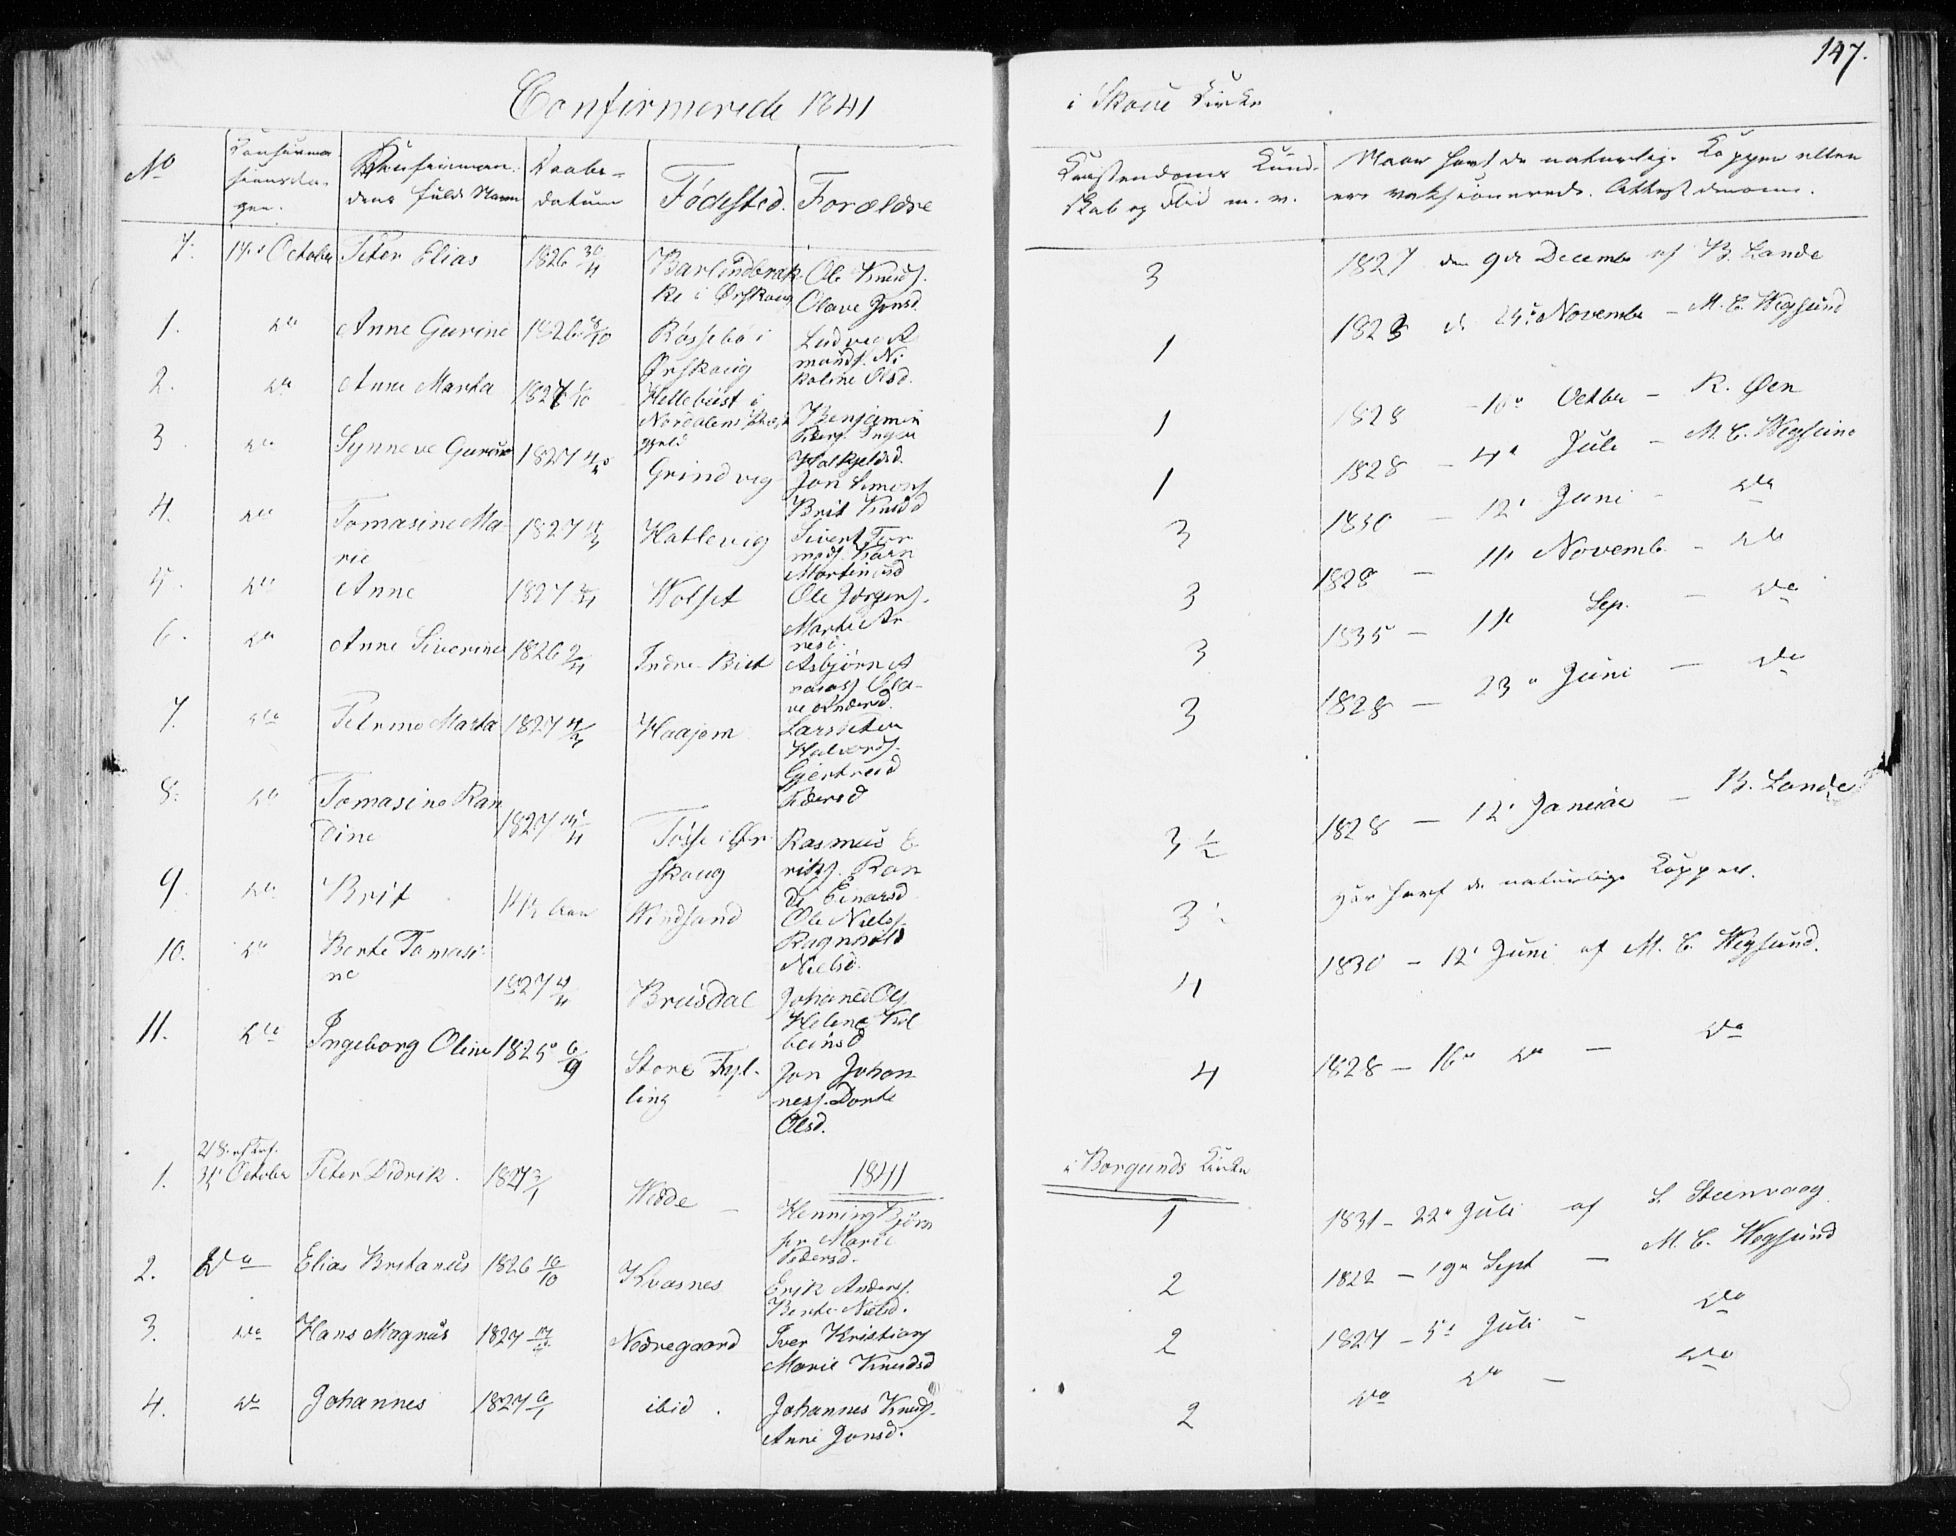 147.
Confirmerede 1841
i Skoue Kirke
No
Confirma
tionsda-
gen.
Confirman-
dens fulde Navn
Daabs-
datum
Fødested.
Forældre
Christendoms Kund-
skab og Flid m. v.
Naar havt de naturlige Kopper eller
ere vaksinerede. Attest derom.
7. 17de October Peter Elias 1826 30/4 Barlindbræk-
ke i Ørskoug
Ole Knuds.
Olave Jonsd.
3 1827 den 9de Decembr af B. Lande
1. do Anne Gurine 1826 /10 Røssebø i
Ørskoug
Ludvig A
monds. Ni
koline Olsd.
1 1828 d. 24de Novembr - M. E. Wegsund
2. do Anne Marta 1827 /10 Hellebust i
Nordalens Præste
gjeld
Benjamin
Peders. Inger
Holkjeldsd.
1 1828 - 10de Octbr - R. Øen
3. do Synneve Gurine 1827 Grindvig
Jon Simons.
Brit Knudsd
1 1828 - 4de Juli - M. E. Wegsund
4. do Tomasine Ma-
rie
1827 Hatlevig
Sivert Tor
mods. Karn
Martinusd
3 1830 - 12te Juni - do
5. do Anne 1827 Wolset
Ole Jørgens.
Marte Ar
nesd.
3 1828 - 11te Novemb. - do
6. do Anne Siverine 1826 2/4 Indre-Bist
Asbjørn A
naas. Ola-
ve Andersd.
3 1835 - 11te Sep. - do
7. do Petrine Marta 1827 Haajem
Lars Peter
Halvors.
Gjertrud
Pedersd
3 1828 - 23de Juni - do
8. do Tomasine Ran
dine
1827 Tosse i Ør
skoug
Rasmus E
riks. Ran
di Einarsd
3 1/2 1828 - 12te Januar - B. Lande
9. do Brit 14 1/2 Aar Windsund
Ole Niels.
Ragnhild
Nielsd.
3 ½ har havt de naturlige Kopper.
10. do Berte Tomasi-
ne
1827 Brusdal
Johanes Ols.
Helene Kol
beinsd
4 1830 - 12te Juni af M. E. Wegsund.
11. do Ingeborg Oline 1825 6/9 Store Fyl-
ling
Jon Johan
ness. Dorte
Olsd.
4 1828 - 16de do - do
1841
i Borgunds Kirke
1. 31te October Peter Didrik. 1827 3/1 Wedde
Henning Bjørn
Marie
Pedersd.
1 1831 - 22de Juli af S. Steenvaag
2. do Elias Britanus 1826 10/10 Kvasnes
Erik Anders.
Berte Nielsd.
2 1822 - 19de Sept - M. E. Wegsund
3. do Hans Magnus 1827 Nedregaard
Iver Kristians
Marie Knudsd
2 1827 - 5te Juli - do
4. do Johannes 1827 6/1 ibid.
Johannes Knuds.
Anne Jonsd.
2 do do - do